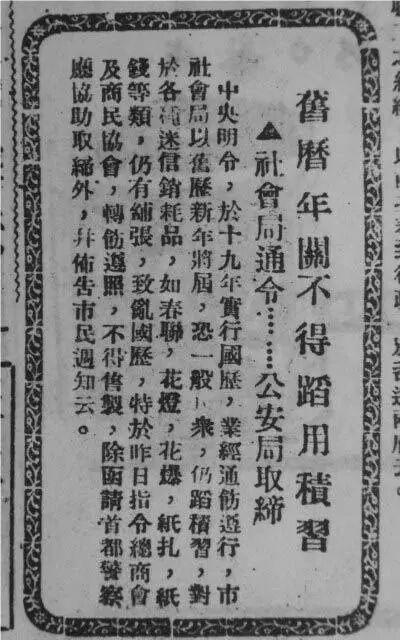 舊曆年關不得蹈用積習
▲社會局通令……公安局取締
中央明令，於十九年實行國歷，業經通飭遵行，市
社會局以舊歷新年將屆，恐一般衆，仍蹈積習，對
於各迷信銷耗品，如春聯，花燈，花爆，紙扎，紙
錢等類，仍有舖張，致亂國歷，特於昨日指令總商會
及商民協會，轉飭遵照，不得售製，除函請首都警察
廳協助取締外，幷佈告市民週知云。